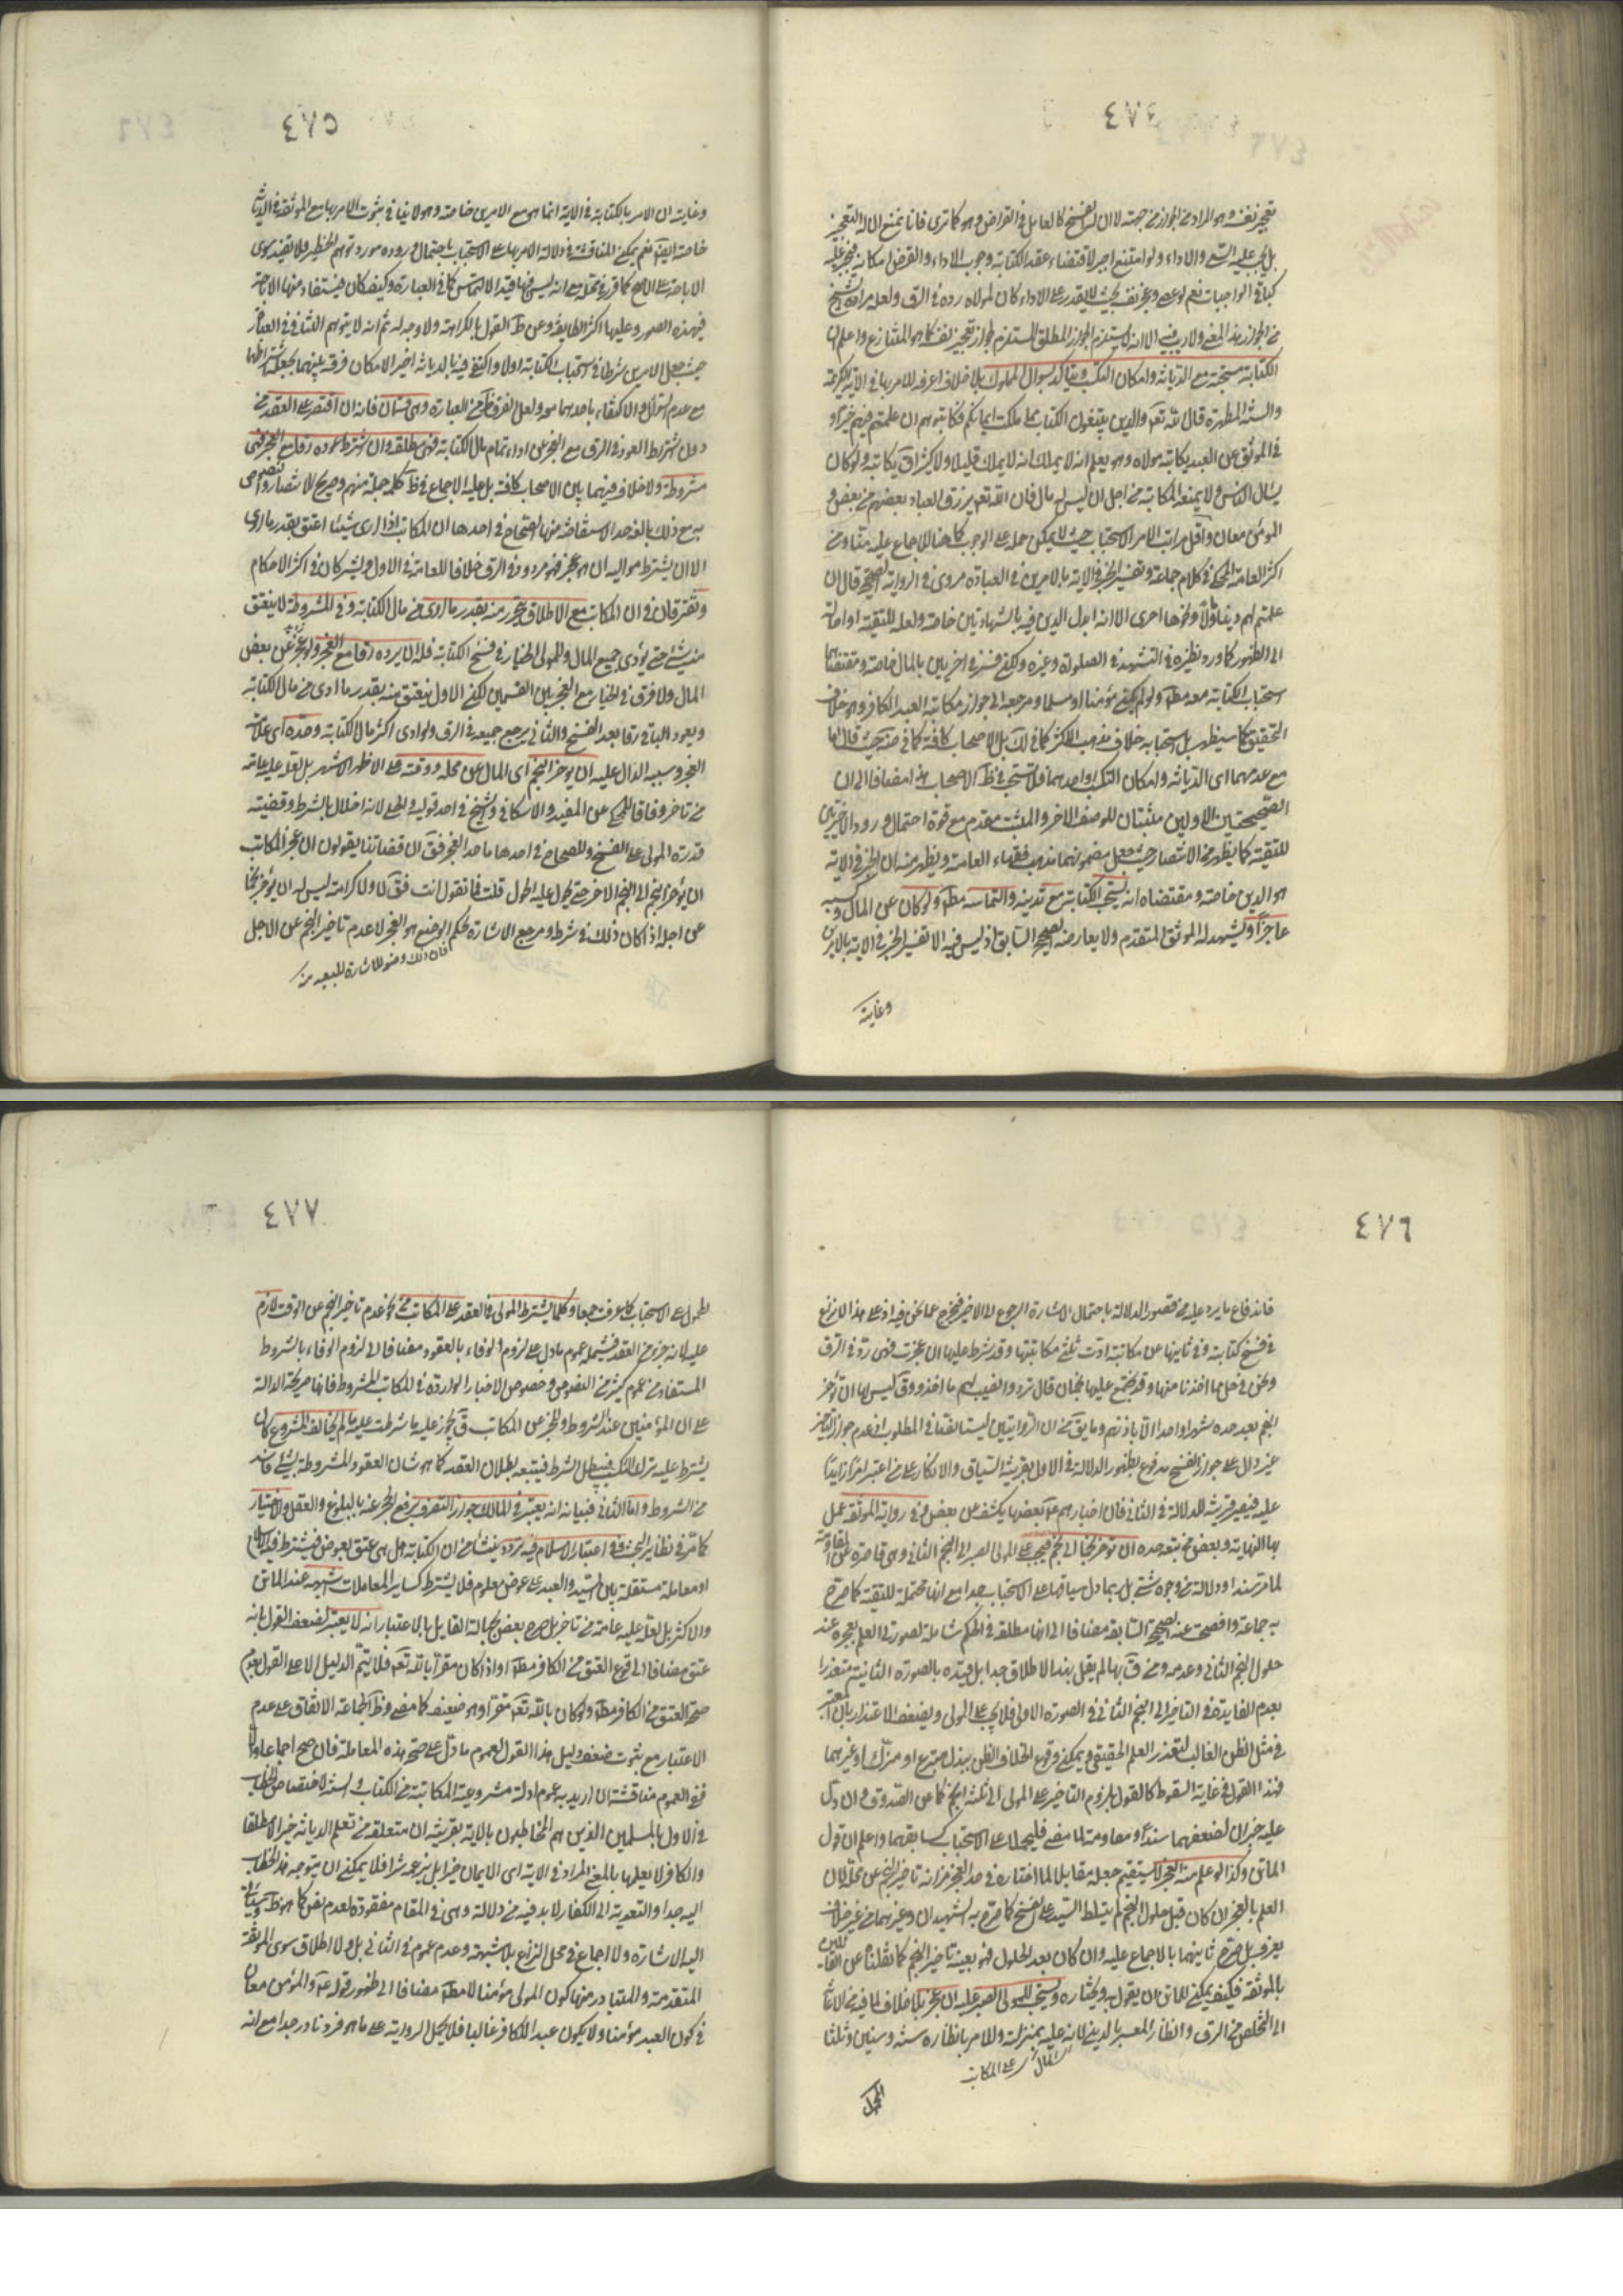 ٤٧٤
تعجيز نفسه وهو المراد من الجواز من جهته لا ان له الفسخ كالعامل في القراض وهو كما ترى فانا نمنع ان له التعجيز
بل يجب عليه السعي والاداء ولو امتنع اجبر لاقتضاء عقد الكتابة وجوب الاداء والقرض امكانه فيجبر عليه
كباقي الواجبات نعم لو عجز نفسه بحيث لا يقدر على الاداء كان لمولاه رده في الرق ولعله مراد الشيخ
من الجواز بهذا المعنى ولا ريب فيه الا انه لا يستلزم الجواز المطلق المستلزم لجواز تعجيز نفسه كما هو المتنازع واعلم ان
الكتابة مستحبة مع الديانة وامكان التكسب ويتأكد بسؤال المملوك بلا خلاف اعرفه للامر بها في الاية الكريمة
والسنة المطهرة قال الله تعه والذين يبتغون الكتاب مما ملكت ايمانكم فكاتبوهم ان علمتم فيهم خيرا و
في الموثق عن العبد يكاتبه مولاه وهو يعلم انه لا يملك قليلا ولا كثيرا ق يكاتبه ولو كان
يسئل الناس ولا يمنعه المكاتبة من اجل ان ليس له مال فان الله تعه يرزق العباد بعضهم من بعض و
المؤمن معان واقل مراتب الامر الاستحباب حيث لا يمكن حمله على الوجوب كما هنا للاجماع عليه منا ومن
اكثر العامة المحكي في كلام جماعة وتفسير الخير في الاية بالامرين في العبادة مروي في الرواية الصحيحة قال ان
علمتم لهم دينا ومالا ونحوها اخرى الا انه ابدل الدين فيه بالشهادتين خاصة ولعله للتقية او احالة
الى الظهور كما ورد نظيره في التشهد في الصلوة وغيره ولكن فسر في اخريين بالمال خاصة ومقتضاهما
استحباب الكتابة معه مطه ولو لم يكن مؤمنا او مسلما ومرجعه الى جواز مكاتبة العبد الكافر وهو خلاف
التحقيق كما سيظهر بل استحبابه خلاف مذهب الاكثر كما في لك بل الاصحاب كافة كما في ضه حيث قال اما
مع عدمهما اى الديانة وامكان التكسب او احدهما فلا تستحب في ظه الاصحاب هذا مضافا الى ان
الصحيحتين الاوليين مثبتان للوصف الاخر والمثبت مقدم مع قوة احتمال ورود الاخريين
للتقية كما يظهر من الانتصار حيث جعل مضمونهما مذهب فقهاء العامة ويظهر منه ان الخير في الاية
هو الدين خاصة ومقتضاه انه يستحب الكتابة مع تدينه والتماسه مطه ولو كان عن المال وكسبه
عاجزا ويشهد له الموثق المتقدم ولا يعارضه الصحيح السابق اذ ليس فيه الا تفسير الخير في الاية بالامرين
وغايته
٤٧٥
وغايته ان الامر بالكتابة في الاية انما هو مع الامرين خاصة وهو لا ينافي ثبوت الامر بها مع الموثقة في الديانة
خاصة ايضه نعم يمكن المناقشة في دلالة الامر بها على الاستحباب باحتمال وروده مورد توهم الحظر فلا يفيد سوى
الاباحة على الاصح كما قرر في محله مع انه ليس فيها قيد الالتماس كما في العبارة وكيف كان فيستفاد منها الاباحة
في هذه الصور وعليها اكثر الطايفة وعن ط القول بالكراهة ولا وجه له ثم انه لا يتوهم التنافي في العبائر
حيث جعل الامرين شرطا في استحباب الكتابة اولا واكتفى فيه بالديانة اخيرا لامكان فرقه بينهما بجعله اشتراطهما
مع عدم السؤال والاكتفاء باحدهما معه ولعل الفرق ظه من العبارة وهى قسمان فانه ان اقتصر على العقد من
دون اشتراط العود في الرق مع العجز عن اداء تمام مال الكتابة فهي مطلقة وان اشترط عوده رقا مع العجز فهي
مشروطة ولا خلاف فيهما بين الاصحاب كافة بل عليه الاجماع في ظه كلمة جملة منهم وصريح الانتصار والنصوص
به مع ذلك بالغة حد الاستفاضة منها الصحاح في احدها ان المكاتب اذا ادى شيئا اعتق بقدر ما ادى
الا ان يشترط مواليه ان هو عجز فهو مردود في الرق خلافا للعامة في الاول ويشتركان في اكثر الاحكام
وتفترقان في ان المكاتب مع الاطلاق يتحرر منه بقدر ما ادى من مال الكتابة وفي المشروطة لا ينعتق
منه شئ حتى يؤدى جميع المال وللمولى الخيار في فسخ الكتابة فله ان يرده رقا مع العجز ولو عجز عن بعض
المال ولا فرق في الخيار مع العجز بين القسمين لكن الاول ينعتق منه بقدر ما ادى من مال الكتابة
ويعود الباقي رقا بعد الفسخ والثاني يرجع جميعه في الرق ولو ادى اكثر مال الكتابة وحده اى علامة
العجز وسببه الدال عليه ان يؤخر النجم اى المال عن محله ووقته على الاظهر الاشهر بل لعله عليه عامة
من تاخر وفاقا للمحكي عن المفيد والاسكافي والشيخ في احد قوليه والحلي لانه اخلال بالشرط وقضيته
قدرة المولى على الفسخ وللصحاح في احدها ما حد العجز فق ان قضاتنا يقولون ان عجز المكاتب
ان يؤخر النجم الى النجم الاخر حتى يحول عليه الحول قلت فما تقول انت فق لا ولا كرامة ليس له ان يؤخر نجما
عن اجله اذا كان ذلك في شرطه ومرجع الاشارة بحكم الوضع هو العجز لا عدم تاخير النجم عن الاجل
فان ذلك وضع للاشارة للبعيد منه
٤٧٦
فاندفاع ما يرد عليه من قصور الدلالة باحتمال الاشارة الرجوع الى الاخير فيخرج عما نحن فيه اذ على هذا لا نزاع
في فسخ كتابته وفي ثانيها عن مكاتبة ادت ثلثي مكاتبتها وقد شرط عليها ان عجزت فهي رد في الرق
ونحن في حل مما اخذنا منها وقد يجتمع عليها نجمان قال ترد ويطيب لهم ما اخذوا وق ليس لها ان تؤخر
النجم بعد حده شهرا واحدا الا باذنهم وما يق من ان الروايتين ليستا نصا في المطلوب اذ عدم جواز التاخير
غير دال على جواز الفسخ مدفوع بظهور الدلالة في الاول بقرينة السياق والانكار على من اعتبر امرا زايدا
عليه فيصير قرينة للدلالة في الثاني فان اخبارهم عه بعضها يكشف عن بعض وفي رواية الموثقة عمل
بها النهاية وبعض من تبعه حده ان يؤخر نجما الى نجم فيجب على المولى الصبر الى النجم الثاني وهى قاصرة عن المقاومة
لما مر سندا ودلالة من وجوه شتى بل ربما دل سياقها على الاستحباب جدا مع انها محتملة للتقية كما صرح
به جماعة وافصحت عنه الصحيحة السابقة مضافا الى انها مطلقة في الحكم شاملة لصورتي العلم بعجزه عند
حلول النجم الثاني وعدمه ومن ق بها لم يقل بهذا الاطلاق جدا بل قيده بالصورة الثانية معتذرا
بعدم الفايدة في التاخير الى النجم الثاني في الصورة الاولى فلا يجب على المولى ويضعف الاعتذار بان المعتبر
في مثل الظن الغالب لتعذر العلم الحقيقي ويمكن وقوع الخلاف الظن ببذل متبرع او من زكاة او غيرهما
فهذا القول في غاية السقوط كالقول بلزوم التاخير على المولى الى ثلثة انجم كما عن الصدوق وان دل
عليه خبران لضعفهما سندا ومقاومة لما مضى فليحملا على الاستحباب كسابقهما واعلم ان قول
الماتن وكذا لو علم منه العجز لا يستقيم جعله مقابلا لما اختاره في حد العجز من انه تاخير النجم عن محله لان
العلم بالعجز ان كان قبل حلول النجم لم يتسلط السيد على الفسخ كما صرح به الشهيدان وغيرهما من غير خلاف
يعرف بل صرح ثانيهما بالاجماع عليه وان كان بعد الحلول فهو بعينه تاخير النجم كما نقلناه عن القائلين
بالموثقة فكيف يمكن للماتن ان يقول به ويختاره ويستحب للمولى الصبر عليه ان عجز بلا خلاف لما فيه من الاعانة
الى التخلص من الرق وانظار المعسر بالدين لانه عليه بمنزلته وللامر بانظاره سنة وسنتين وثلثا
المحمول
٤٧٧
المحمول على الاستحباب كما عرفت جمعا وكلما يشترط المولى في العقد على المكاتب من نحو عدم تاخير النجم عن الوقت لازم
عليه لانه جزء من العقد فيشمله عموم ما دل على لزوم الوفاء بالعقود مضافا الى لزوم الوفاء بالشروط
المستفاد من عموم كثير من النصوص وخصوص الاخبار الواردة في المكاتب المشروط فانها صريحة الدالة
على ان المؤمنين عند الشروط والخبر عن المكاتب ق يجوز عليه ما شرطت عليه ما لم يخالف المشروع كان
يشترط عليه ترك التكسب فيبطل الشرط فيتبعه بطلان العقد كما هو شان العقود المشروطة بشئ فاسد
من الشروط واما الثاني فبيانه انه يعتبر في المالك جواز التصرف برفع الحجر عنه بالبلوغ والعقل والاختيار
كما مر في نظاير البحث وفي اعتبار الاسلام فيه تردد ينشأ من ان الكتابة هل هي عتق بعوض فيشترط فيه الاسلام
او معاملة مستقلة بين السيد والعبد على عوض معلوم فلا يشترط كساير المعاملات اشبهه عند الماتن
والاكثر بل لعله عليه عامة من تاخر بل صرح بعض بجهالة القايل بالاعتبار انه لا يعتبر لضعف القول بانه
عتق مضافا الى وقوع العتق من الكافر مطه او اذا كان مقرا بالله تعه فلا يتم الدليل الا على القول بعدم
صحة العتق من الكافر مطه ولو كان بالله تعه مقرا وهو ضعيف كما مضى وظه الجماعة الاتفاق على عدم
الاعتبار مع ثبوت ضعف دليل هذا القول لعموم ما دل على صحة هذه المعاملة فان صح اجماعا والا
ففي العموم مناقشة ان اريد به عموم ادلة مشروعية المكاتبة من الكتاب والسنة لاختصاص الخطاب
في الاول بالمسلمين الذين هم المخاطبون بالاية بقرينة ان متعلقه من تعلم الديانة خيرا لا مطلقا
والكافر لا يعلمها بالمعنى المراد في الاية اى الايمان خيرا بل يزعمه شرا فلا يمكن ان يتوجه هذا الخطاب
اليه جدا والتعدية الى الكفار لا بد فيه من دلالة وهى في المقام مفقودة لعدم نص كما هو ظه وسيأتي
اليه الاشارة ولا اجماع في محل النزاع بلا شبهة وعدم عموم في الثاني بل ولا اطلاق سوى الموثقة
المتقدمة والمتبادر منها كون المولى مؤمنا لا مطه مضافا الى ظهور قوله عه والمؤمن معان
في كون العبد مؤمنا ولا يكون عبد الكافر غالبا فلا يحمل الرواية على ما هو فرد نادر جدا مع انه